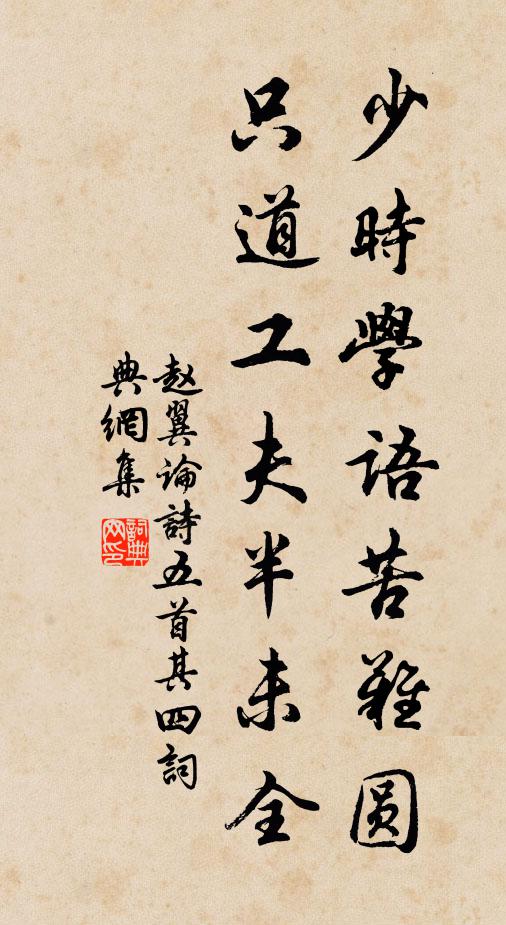 少時學語苦難圆
只道工夫半未全
赵翼论詩五首其四詞
典網集
詞典
网印